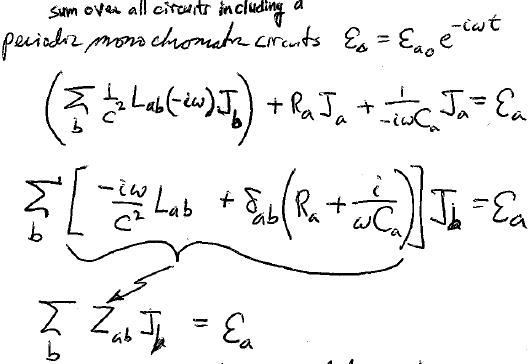 sum over all circuits including a
periodic monochromatic circuits ℰₐ = ℰₐ₀ e^{-iωt}
(∑_b 1/c² L_ab(-iω)J_b) + R_a J_a + 1/(-iωC_a) J_a = ℰ_a
∑_b [ -iω/c² L_ab + δ_ab (R_a + i/(ωC_a)) ] J_b = ℰ_a
∑_b Z_ab J_b = ℰ_a